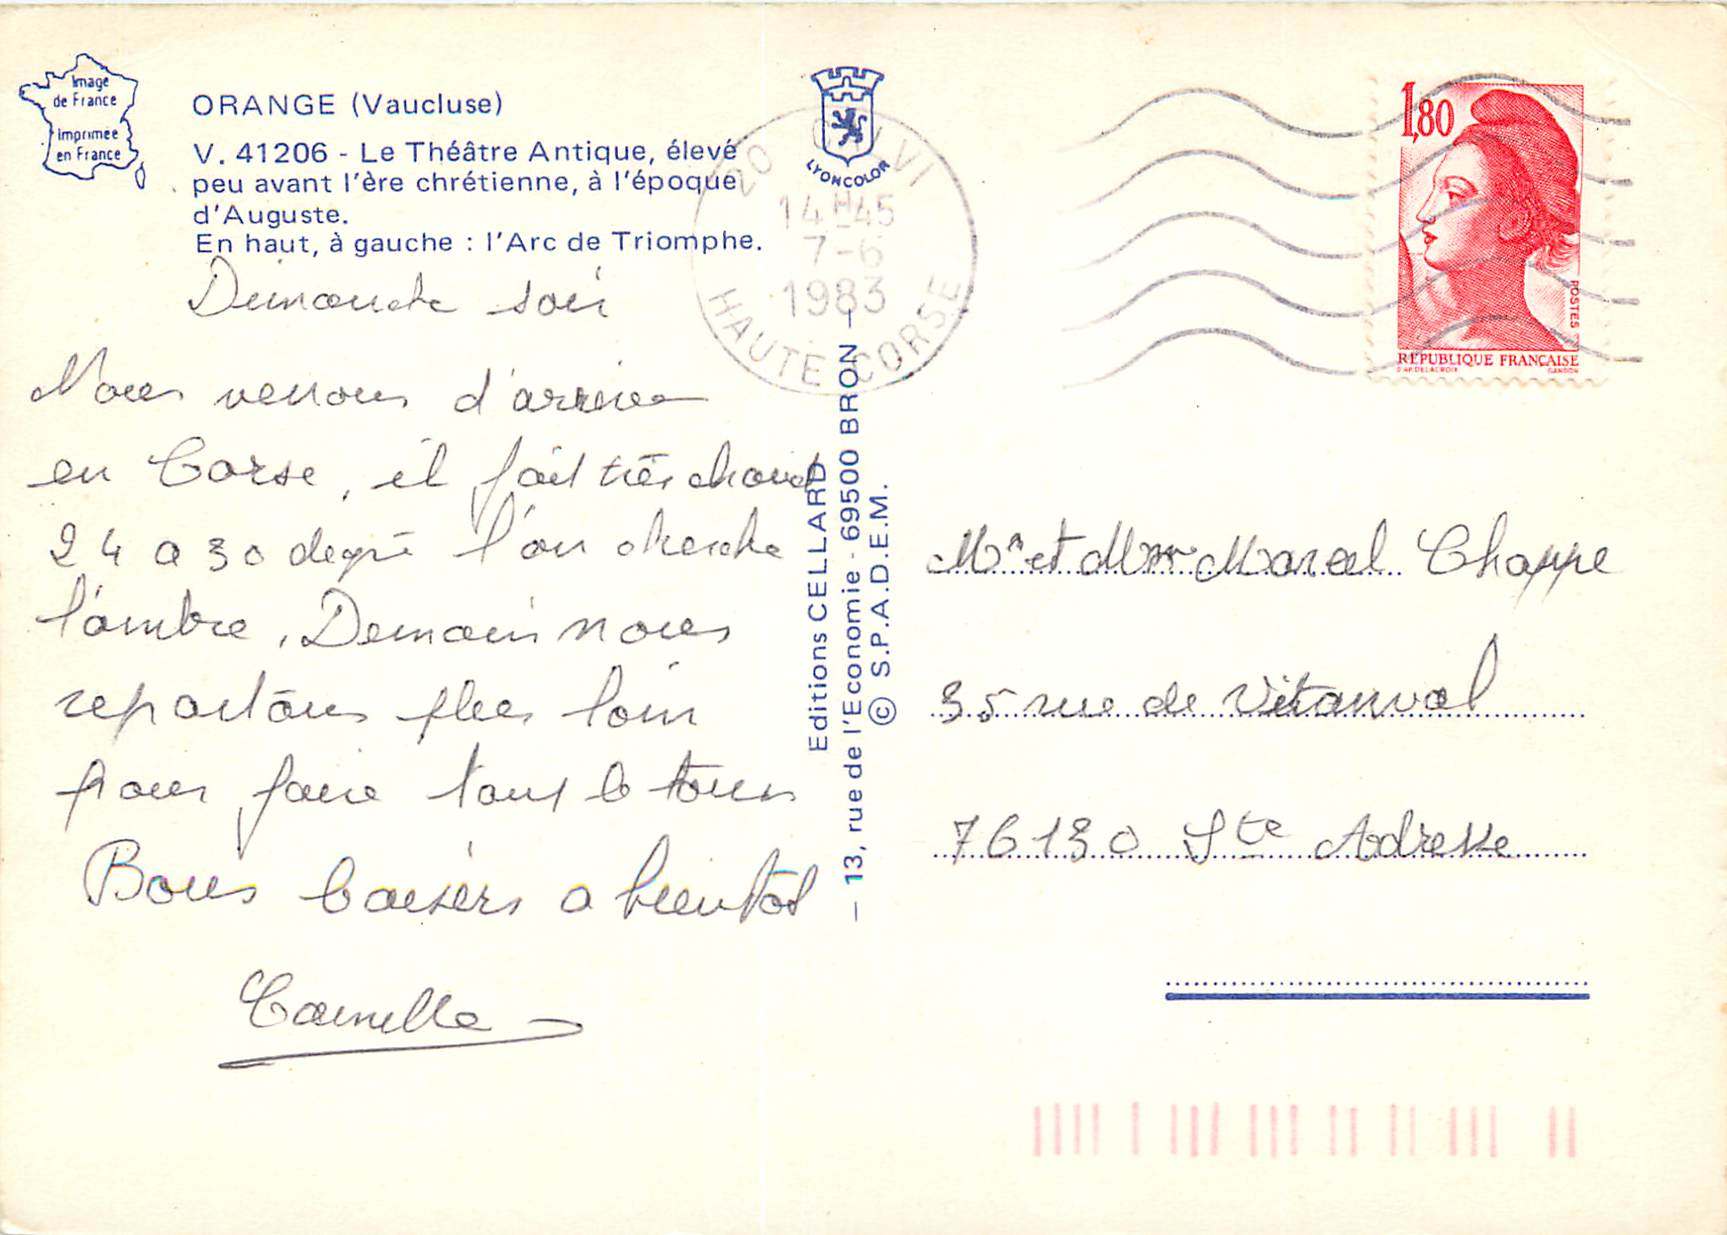 Image
de France
Imprimée
en France
ORANGE (Vaucluse)
V. 41206 - Le Théâtre Antique, élevé
peu avant l'ère chrétienne, à l'époque
d'Auguste.
En haut, à gauche : l'Arc de Triomphe.
Dimanche soir
Nous venons d'arriver
en Corse, il fait très chaud
24 a 30 degré l'on cherche
l'ombre, Demain nous
repartons plus loin
pour faire tout le tour
Bons baisers a bientôt
Camille
LYONCOLOR
20 CALVI
14H45
7-6
1983
HAUTE CORSE
Editions CELLARD
— 13, rue de l'Economie - 69500 BRON —
© S.P.A.D.E.M.
1,80
POSTES
RÉPUBLIQUE FRANÇAISE
D'AP. DELACROIX GANDON
Mr et Mme Marcel Chappe
35 rue de Vitanval
76130 Ste Adresse